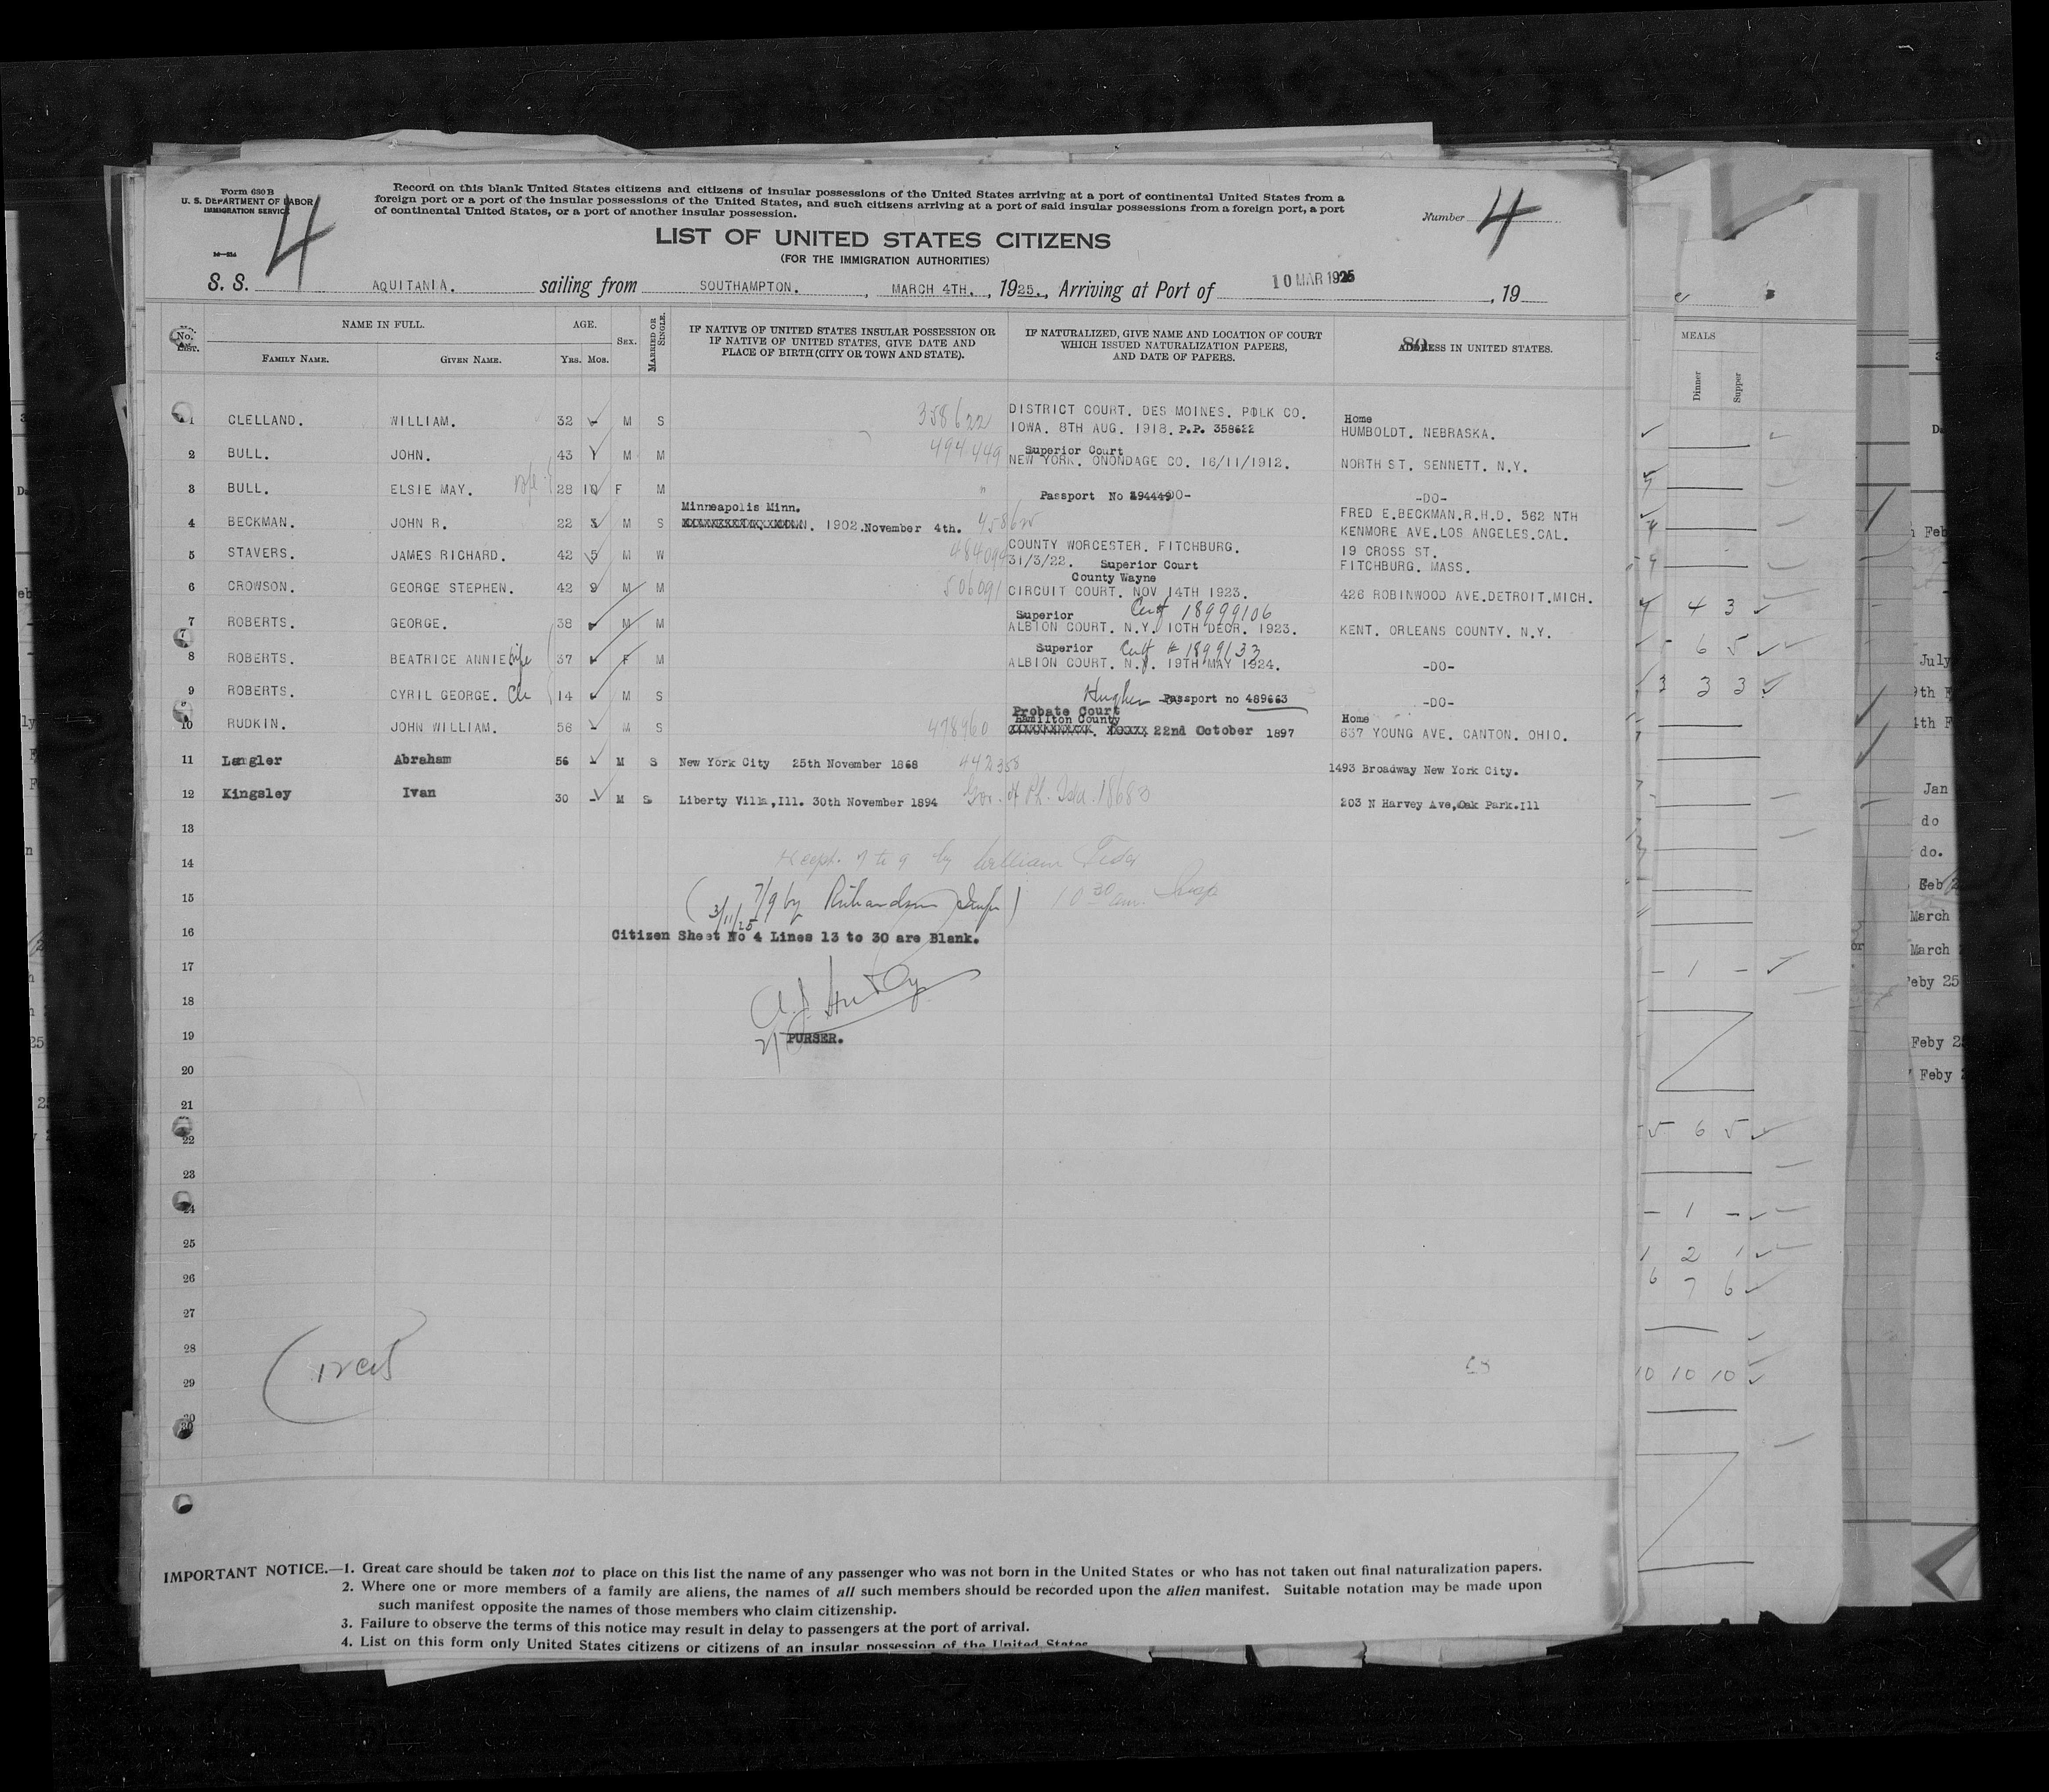 Form 630 B
U. S. DEPARTMENT OF LABOR
IMMIGRATION SERVICE
4
Record on this blank United States citizens and citizens of insular possessions of the United States arriving at a port of continental United States from a
foreign port or a port of the insular possessions of the United States, and such citizens arriving at a port of said insular possessions from a foreign port, a port
of continental United States, or a port of another insular possession.
Number 4
LIST OF UNITED STATES CITIZENS
(FOR THE IMMIGRATION AUTHORITIES)
S. S. AQUITANIA. sailing from SOUTHAMPTON. , MARCH 4TH. , 1925. , Arriving at Port of 10 MAR 1925 , 19
No. on List. NAME IN FULL. AGE. SEX. MARRIED OR SINGLE.
FAMILY NAME. GIVEN NAME. YRS. MOS.
IF NATIVE OF UNITED STATES INSULAR POSSESSION OR
IF NATIVE OF UNITED STATES, GIVE DATE AND
PLACE OF BIRTH (CITY OR TOWN AND STATE).
IF NATURALIZED, GIVE NAME AND LOCATION OF COURT
WHICH ISSUED NATURALIZATION PAPERS,
AND DATE OF PAPERS.
ADDRESS IN UNITED STATES.
1 CLELLAND. WILLIAM. 32 M S 358622 DISTRICT COURT. DES MOINES. POLK CO.
IOWA. 8TH AUG. 1918. P.P. 358622 Home
HUMBOLDT. NEBRASKA.
2 BULL. JOHN. 43 M M 494449 Superior Court
NEW YORK. ONONDAGE CO. 16/11/1912. NORTH ST. SENNETT. N.Y.
3 BULL. ELSIE MAY. wife 28 10 F M " Passport No 494449 -DO-
4 BECKMAN. JOHN R. 22 3 M S Minneapolis Minn.
1902. November 4th. 458625 FRED E.BECKMAN.R.H.D. 562 NTH
KENMORE AVE.LOS ANGELES.CAL.
5 STAVERS. JAMES RICHARD. 42 5 M W 484094 COUNTY WORCESTER. FITCHBURG.
31/3/22. Superior Court 19 CROSS ST.
FITCHBURG. MASS.
6 CROWSON. GEORGE STEPHEN. 42 9 M M 506091 County Wayne
CIRCUIT COURT. NOV 14TH 1923. 426 ROBINWOOD AVE.DETROIT.MICH.
7 ROBERTS. GEORGE. 38 M M Superior Cert 18999106
ALBION COURT. N.Y. 10TH DECR. 1923. KENT. ORLEANS COUNTY. N.Y.
8 ROBERTS. BEATRICE ANNIE wife 37 F M Superior Cert # 1899133
ALBION COURT. N.Y. 19TH MAY 1924. -DO-
9 ROBERTS. CYRIL GEORGE. Ch 14 M S Hughes Passport no 489663 -DO-
10 RUDKIN. JOHN WILLIAM. 58 M S 478960 Probate Court
Hamilton County
22nd October 1897 Home
637 YOUNG AVE. CANTON. OHIO.
11 Langler Abraham 56 M S New York City 25th November 1868 442358 1493 Broadway New York City.
12 Kingsley Ivan 30 M S Liberty Villa,Ill. 30th November 1894 203 N Harvey Ave,Oak Park.Ill
13
14 7 to 9 by William
15 ( 7/9 by Richardson Insp ) 10 30 am.
3/11/25
16 Citizen Sheet No 4 Lines 13 to 30 are Blank.
17
18
19 PURSER.
20
21
22
23
24
25
26
27
28
29
30
IMPORTANT NOTICE.—1. Great care should be taken not to place on this list the name of any passenger who was not born in the United States or who has not taken out final naturalization papers.
2. Where one or more members of a family are aliens, the names of all such members should be recorded upon the alien manifest. Suitable notation may be made upon
such manifest opposite the names of those members who claim citizenship.
3. Failure to observe the terms of this notice may result in delay to passengers at the port of arrival.
4. List on this form only United States citizens or citizens of an insular possession of the United States
MEALS
Dinner
Supper
4 3
6 5
3 3 3
- 1 -
5 6 5
- 1 -
1 2 1
6 7 6
10 10 10
July
Jan
do
do.
Feb
March
March
Feby 25
Feby 2
Feby